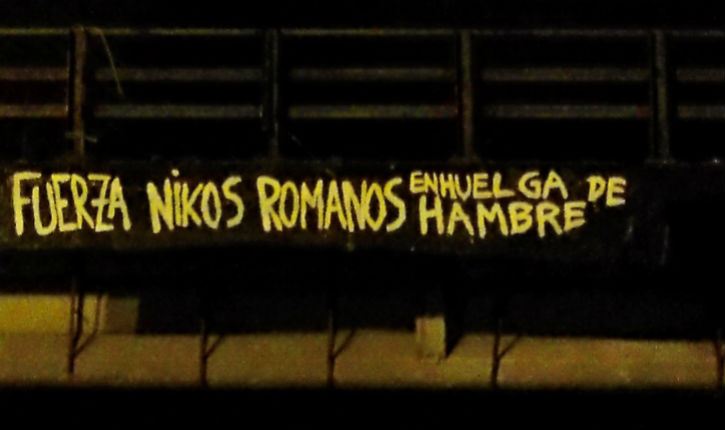 FUERZA NiKOS ROMANOS
ENHUELGA DE
HAMBRE